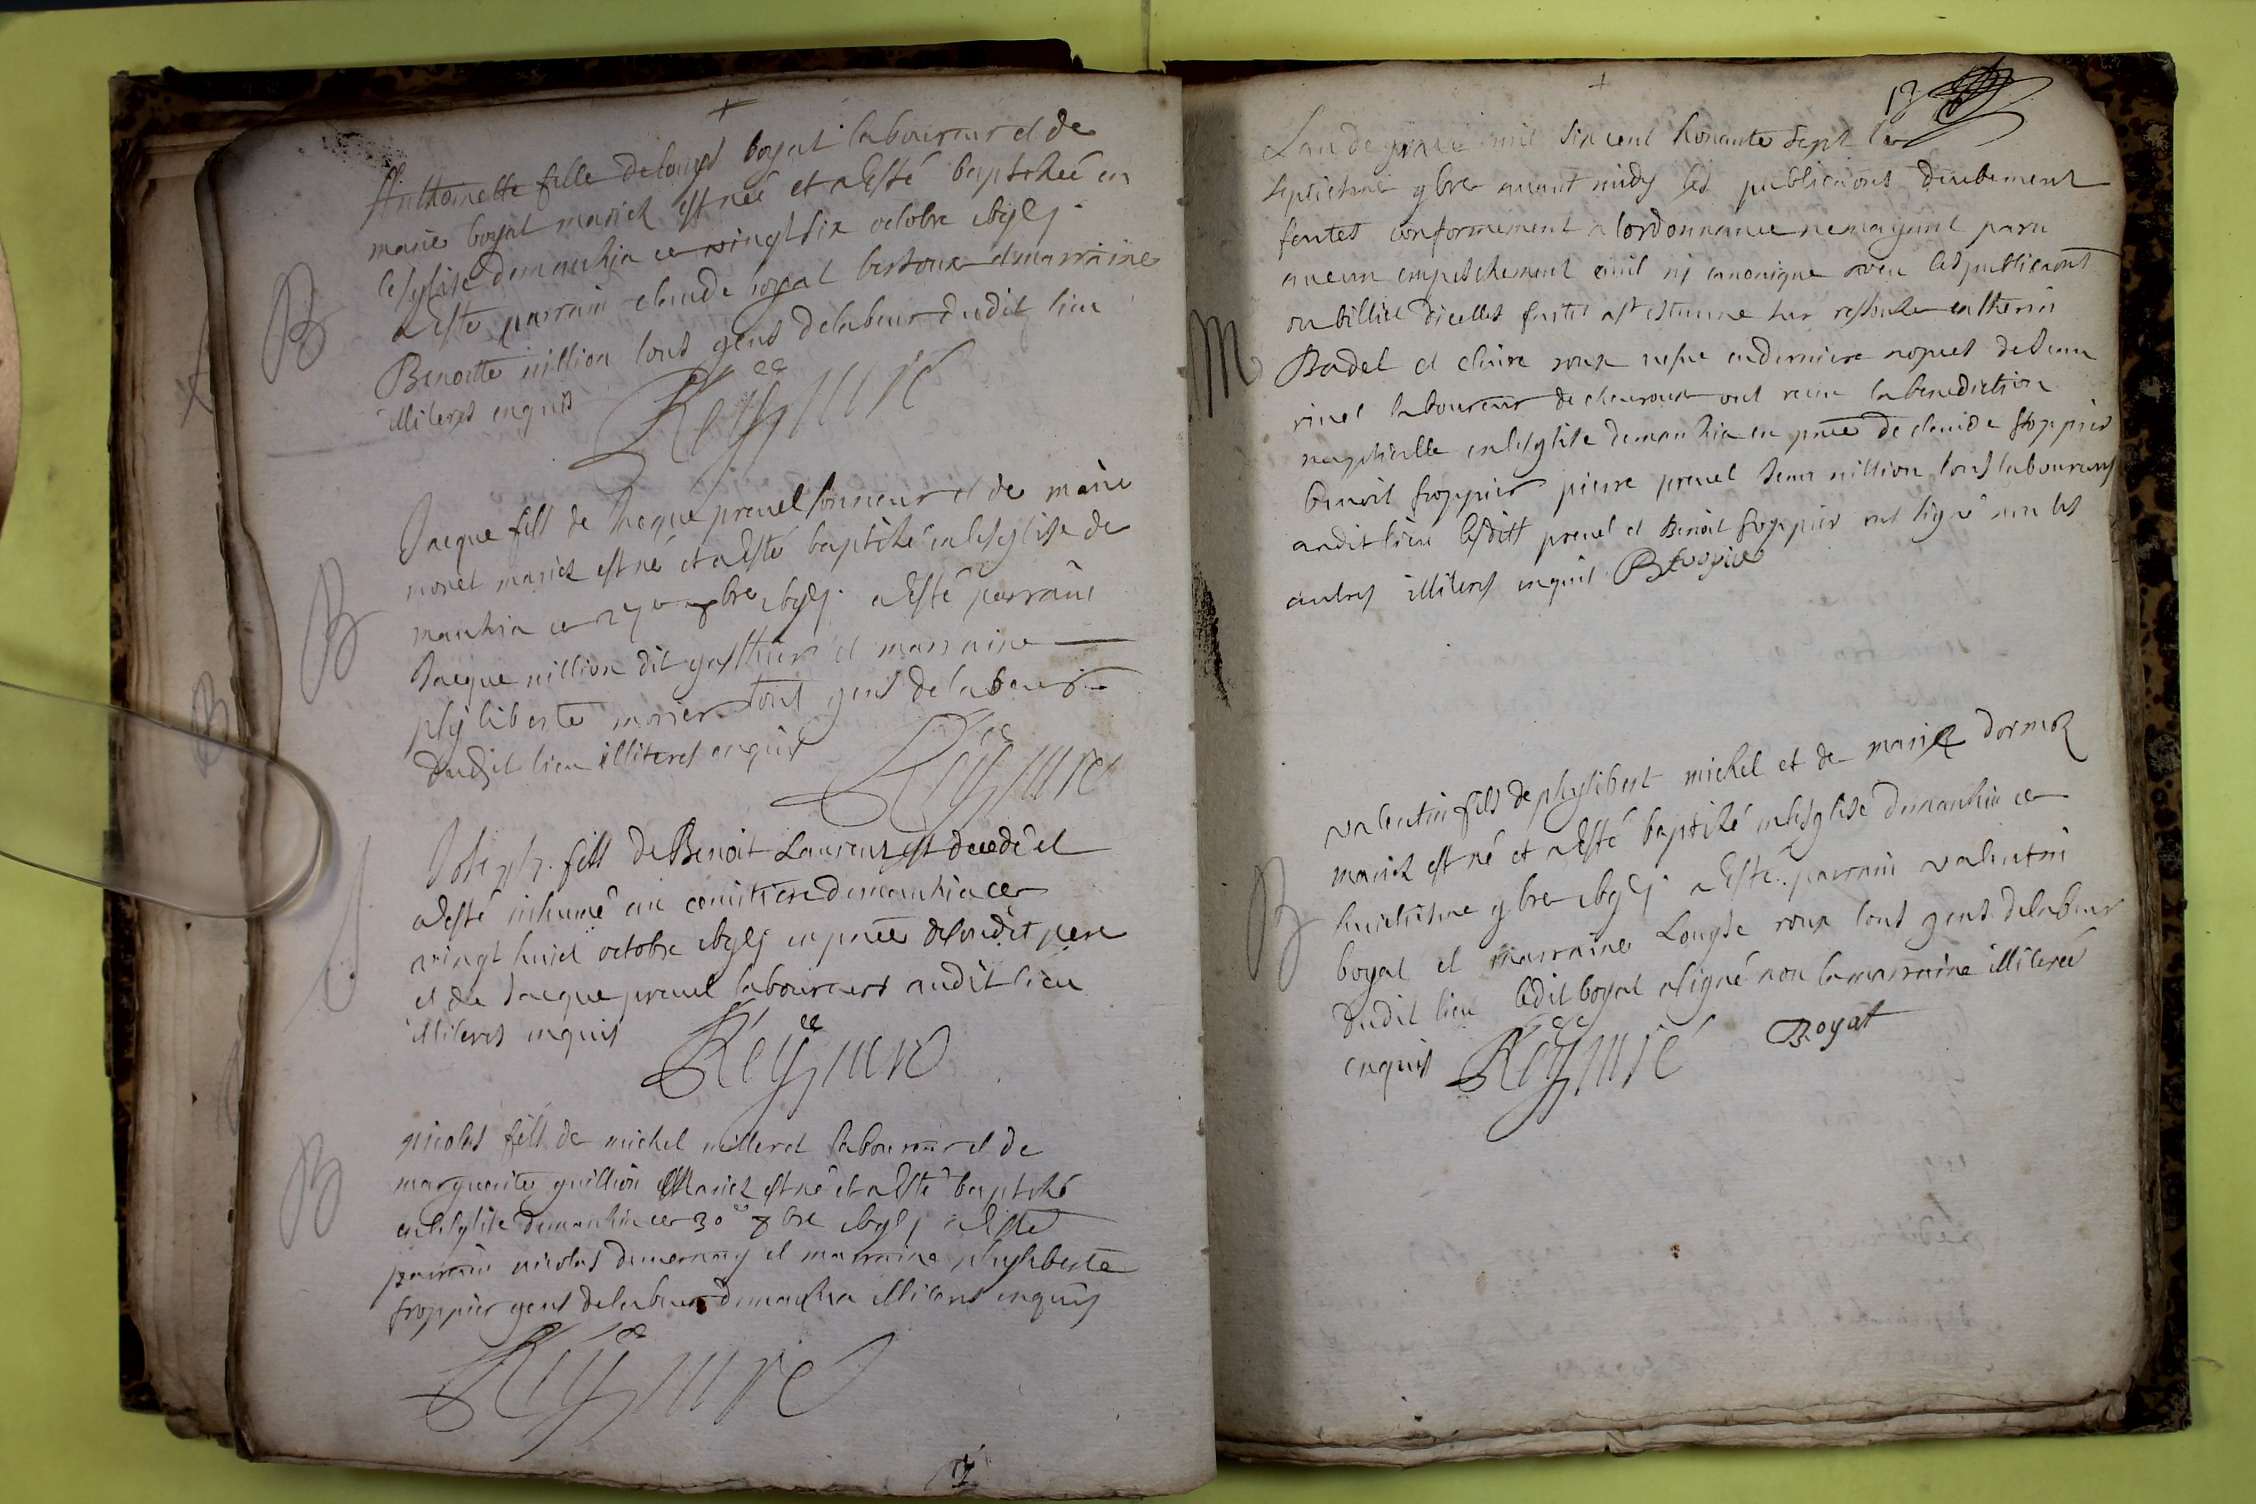 +
B
Anthoinette fille de Louys boyat laboureur et de
marie boyat mariez est née et a Esté baptizeé en
lesglise demanzia ce vingt six octobre
a Este parrain claude boyat et marraine
Benoitte million tous gens delabeur dudit lieu
illiteres enquis
Rey curé
B
Jacque fils de Jacque prevel et de marie
morel mariez est né et a Esté baptizé en lesglise de
manzia ce 27e 8bre a Esté parrain
Jacque million dit gaulthier et marraine
phyliberte morier tout gens delabeur
dudit lieu illiteres enquis
Rey curé
Joseph fils de Benoit Laurent est decedé et
a esté inhumé au cemitiere demanzia ce
vingt huict octobre en pnce de sondit pere
et de Jacque prevel laboureurs audit lieu
illiteres enquis
Rey curé
B
nicolas fils de michel milleret laboureur et de
marguerite million Mariez est né et a Esté baptizé
en lesglise demanzia ce 30e 8bre a Esté
parrain nicolas et marraine phyliberte
froppier gens delabeur demanzia illiteres enquis
Rey curé
+
13
M
Lan de grace mil six cent nonante sept le
septiesme 9bre avant midy les publications deuhement
faites conformement a lordonnance ne mayant paru
aucun empeschement civil ny canonique veu les publications
ou billiet dicelles faites
Badel et claire roux en derniere nopces de Jean
laboureur de ont receu la benediction
nuptialle en lesglise demanzia en pnce de claude froppier
benoit froppier pierre prevel Jean million tous laboureurs
audit lieu lesdits prevel et Benoit froppier ont signé non les
autres illiteres enquis B fropier
B
valentin fils de phylibert michel et de marie dormoz
mariez est né et a Esté baptizé en lesglise demanzia ce
huictiesme 9bre a Esté parrain valentin
boyat et marraine Louyse roux tous gens delabeur
dudit lieu ledit boyat a signé non la marraine illiteree
enquis Rey curé Boyat